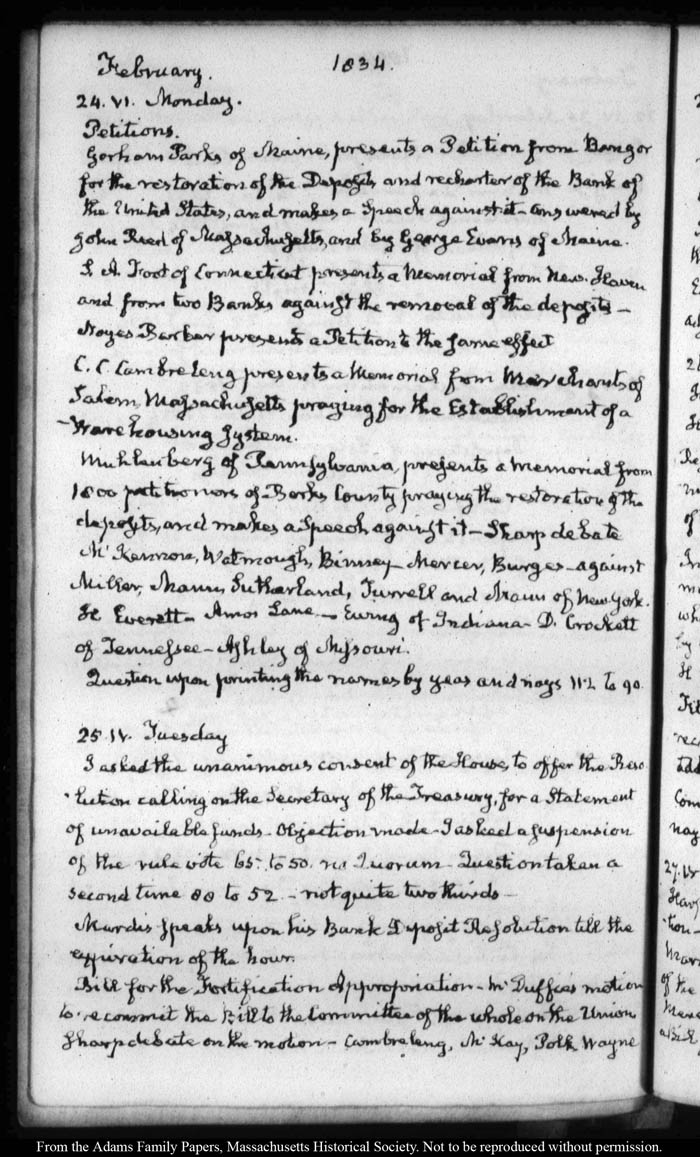 February. 1834.
24. VI. Monday.
Petitions.
Gorham Parks of Maine, presents a Petition from Bangor
for the restoration of the Deposits and recharter of the Bank of
the United States, and makes a Speech against it - answered by
John Reed of Massachusetts, and by George Evans of Maine.
S. A. Foot of Connecticut presents a Memorial from New-Haven
and from two Banks against the removal of the deposits -
Noyes Barber presents a Petition to the same effect
C. C. Cambreleng presents a Memorial from Merchants of
Salem, Massachusetts praying for the Establishment of a
Warehousing System.
Muhlenberg of Pennsylvania, presents a memorial from
1800 petitioners of Berks County praying the restoration of the
deposits, and makes a Speech against it - Sharp debate
McKennan, Watmough, Binney - Mercer, Burges - against
Miller, Mann, Sutherland, Turrell and Mann of New York.
H. Everett - Amos Lane - Ewing of Indiana - D. Crockett
of Tennessee - Ashley of Missouri.
Question upon printing the names by yeas and nays 112 to 90
25. IV. Tuesday
I asked the unanimous consent of the House, to offer the Reso
lution calling on the Secretary of the Treasury, for a Statement
of unavailable funds - Objection made - I asked a suspension
of the rule vote 65. to 50. no Quorum - Question taken a
second time 88 to 52 - not quite two thirds -
Mardis speaks upon his Bank Deposit Resolution till the
expiration of the hour.
Bill for the Fortification Appropriation - McDuffie's motion
to recommit the Bill to the Committee of the whole on the Union
Sharp debate on the motion - Cambreleng, McKay, Polk Wayne
From the Adams Family Papers, Massachusetts Historical Society. Not to be reproduced without permission.